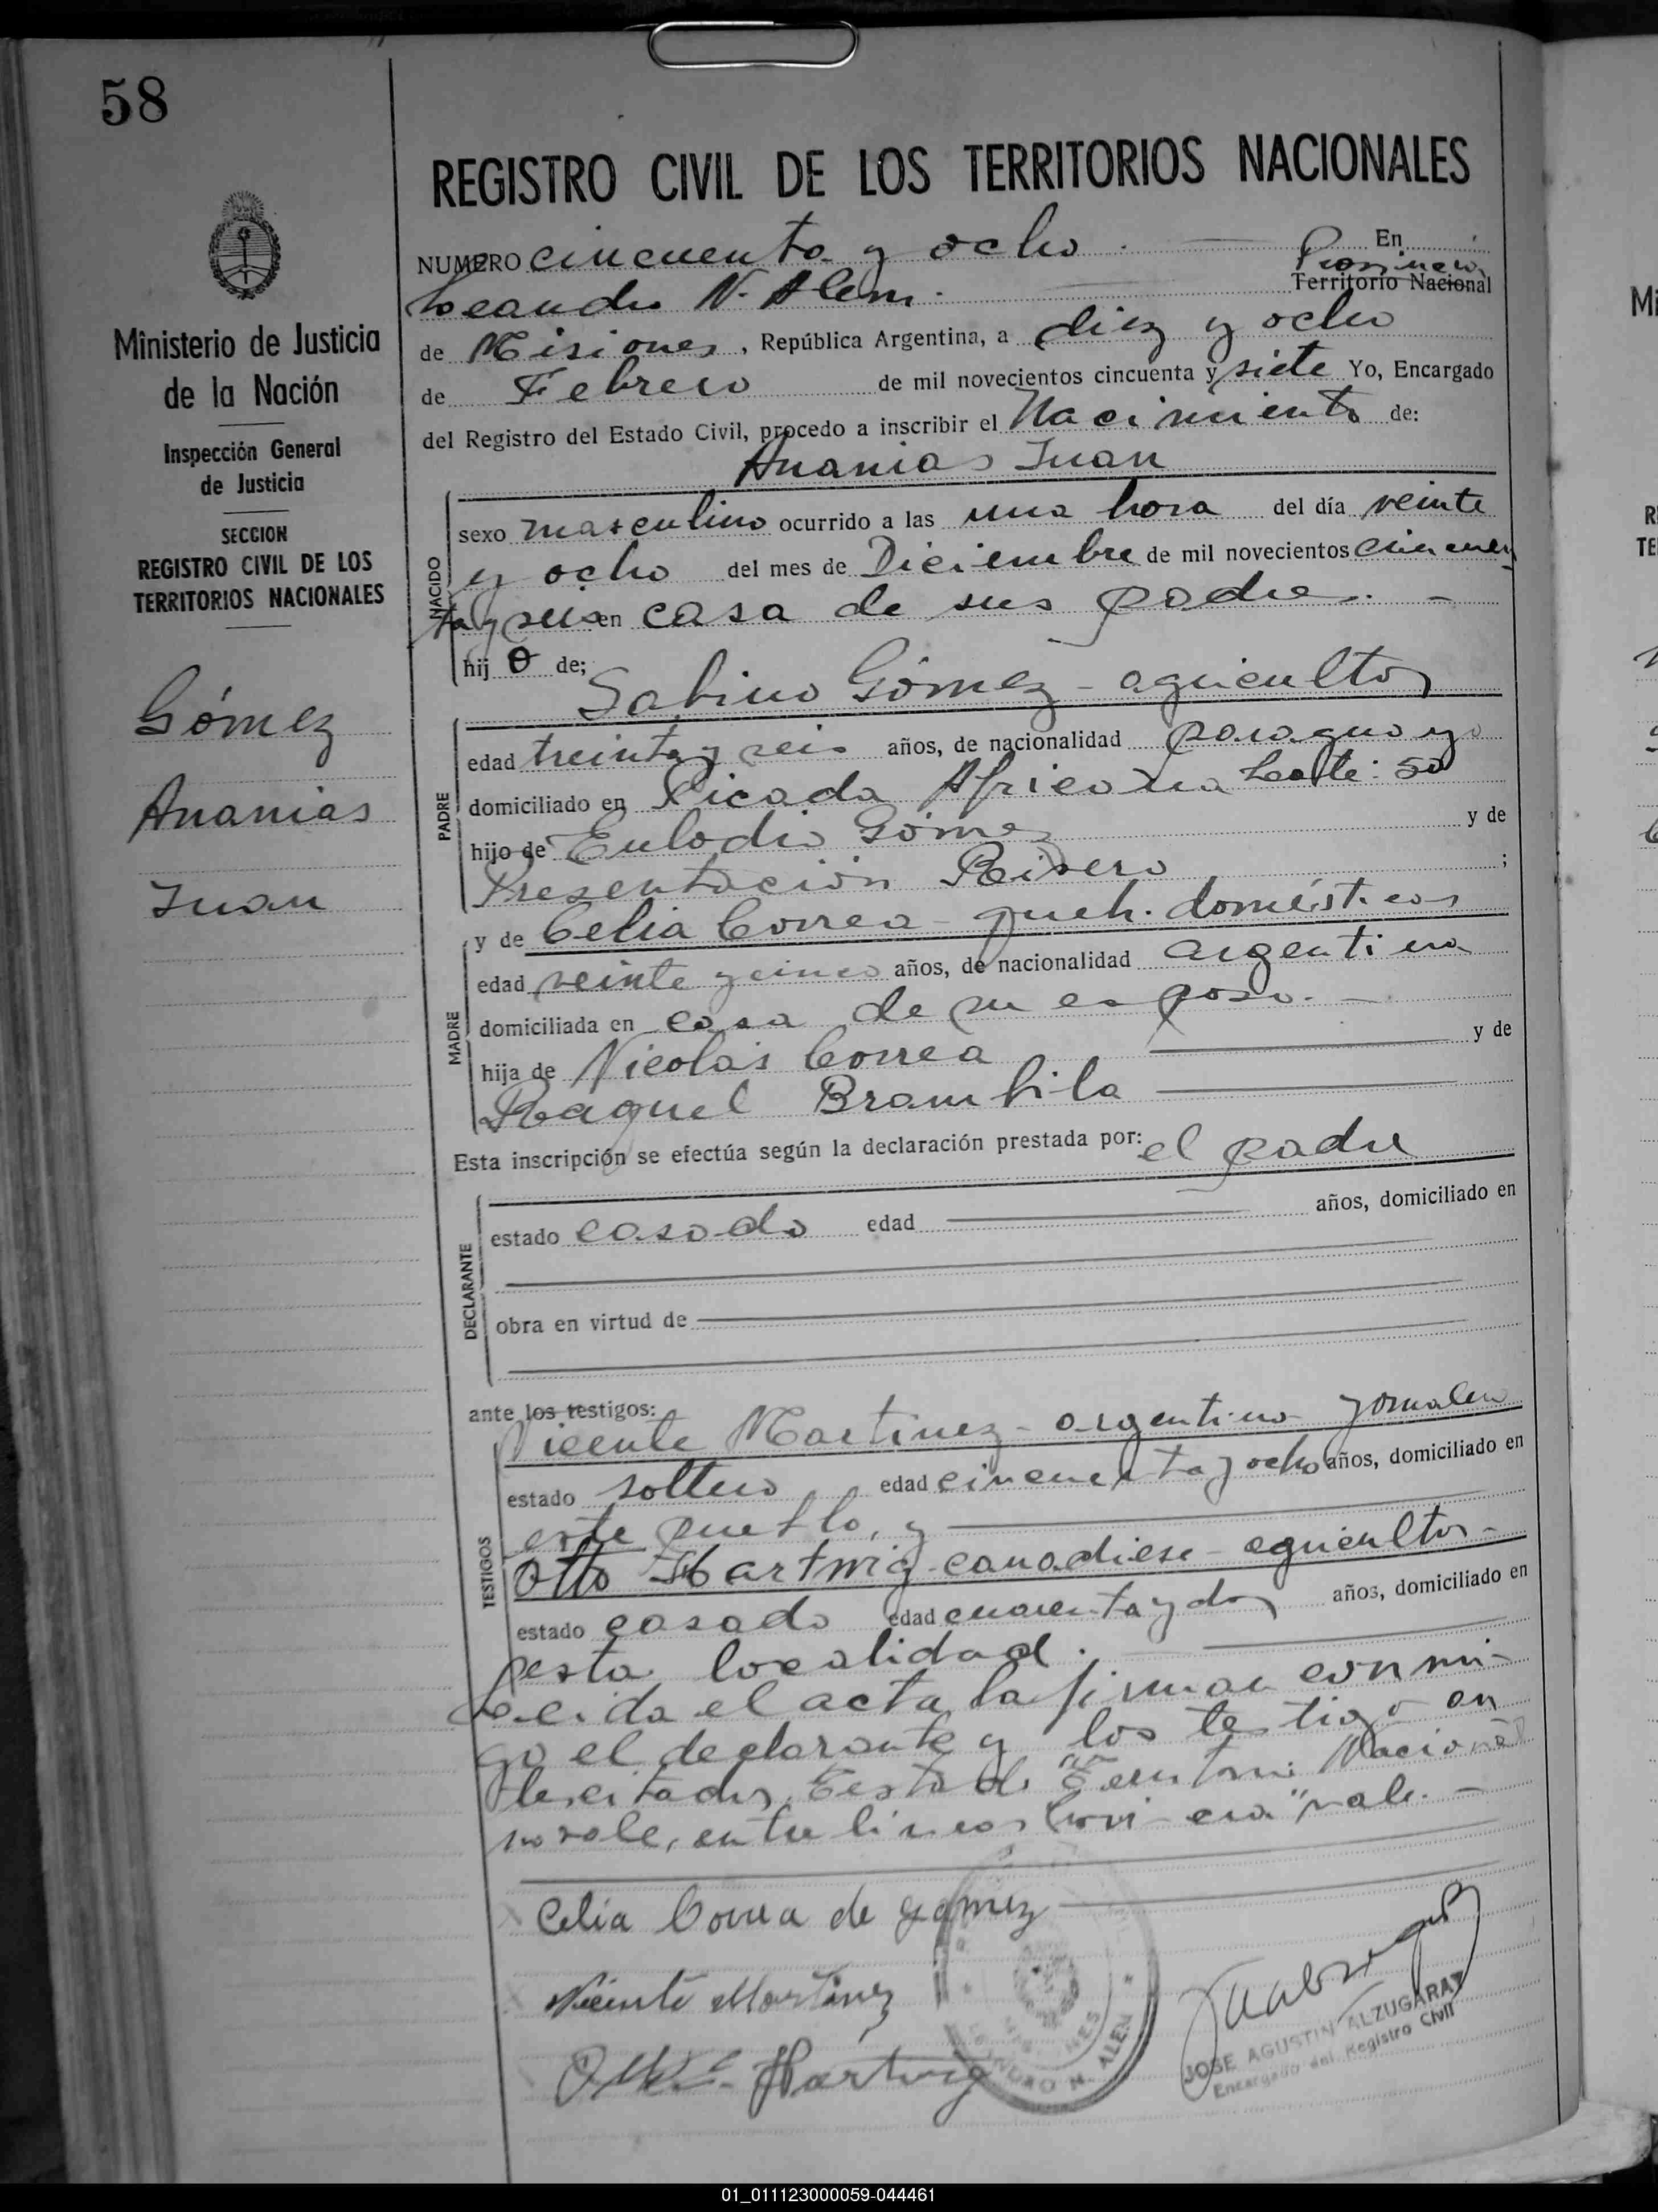 58
REGISTRO CIVIL DE LOS TERRITORIOS NACIONALES
NUMERO cincuenta y ocho En
Provincia
Leandro N. Alem. Territorio Nacional
de Misiones, República Argentina, a diez y ocho
de Febrero de mil novecientos cincuenta y siete Yo, Encargado
del Registro del Estado Civil, procedo a inscribir el Nacimiento de:
Ananias Juan
Ministerio de Justicia
de la Nación
Inspección General
de Justicia
SECCION
REGISTRO CIVIL DE LOS
TERRITORIOS NACIONALES
Gómez
Ananias
Juan
NACIDO
sexo masculino ocurrido a las una hora del día veinte
y ocho del mes de Diciembre de mil novecientos cincuen
ta y seis en casa de sus padres. -
hij o de;
Sabino Gómez - agricultor
PADRE
edad treinta y seis años, de nacionalidad paraguayo
domiciliado en Picada Africana Lote: 50
hijo de Eulodio Gómez y de
Presentación Rivero ;
MADRE
y de Celia Correa - queh. domésticos
edad veinte y cinco años, de nacionalidad argentina
domiciliada en casa de su esposo. -
hija de Nicolás Correa y de
Raquel Brambila
Esta inscripción se efectúa según la declaración prestada por: el padre
DECLARANTE
estado casado edad años, domiciliado en
obra en virtud de
ante los testigos:
TESTIGOS
Vicente Martinez - argentino jornalero
estado soltero edad cincuenta y ocho años, domiciliado en
este pueblo, y
Otto Hartwig - canadiese - agricultor -
estado casado edad cuarenta y dos años, domiciliado en
esta localidad.
Leida el acta la firman conmi-
go el declarante y los testigos an
tes citados. Testado "Territorio Nacional
no vale, entre lineas Provincia" vale. -
Celia Correa de gomez
Vicente Martinez
Otto E. Hartwig
LEANDRO N. ALEM
MISIONES
JOSE AGUSTIN ALZUGARAY
Encargado del Registro Civil
01_011123000059-044461